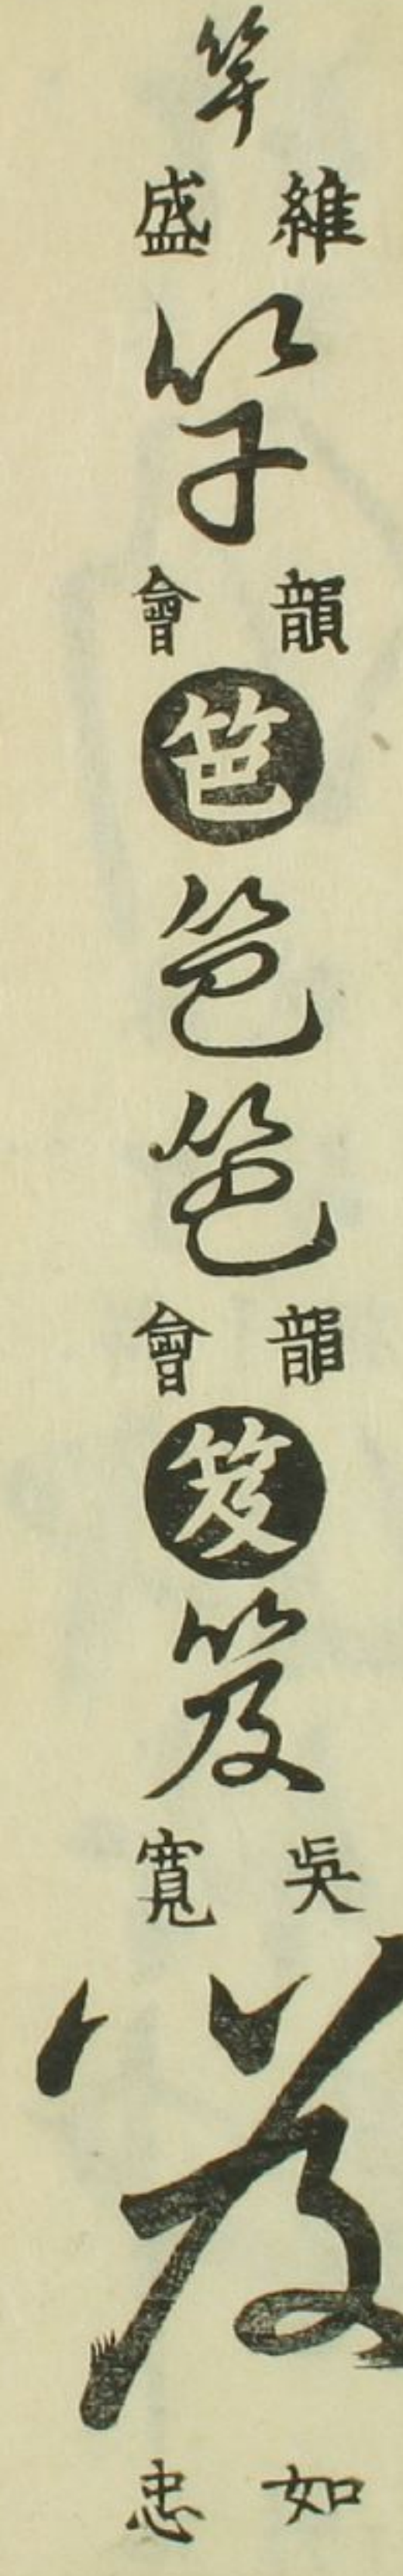 竿
維盛
竿
韻會
笆
笆
笆
韻會
笈
笈
吳寬
笈
如忠